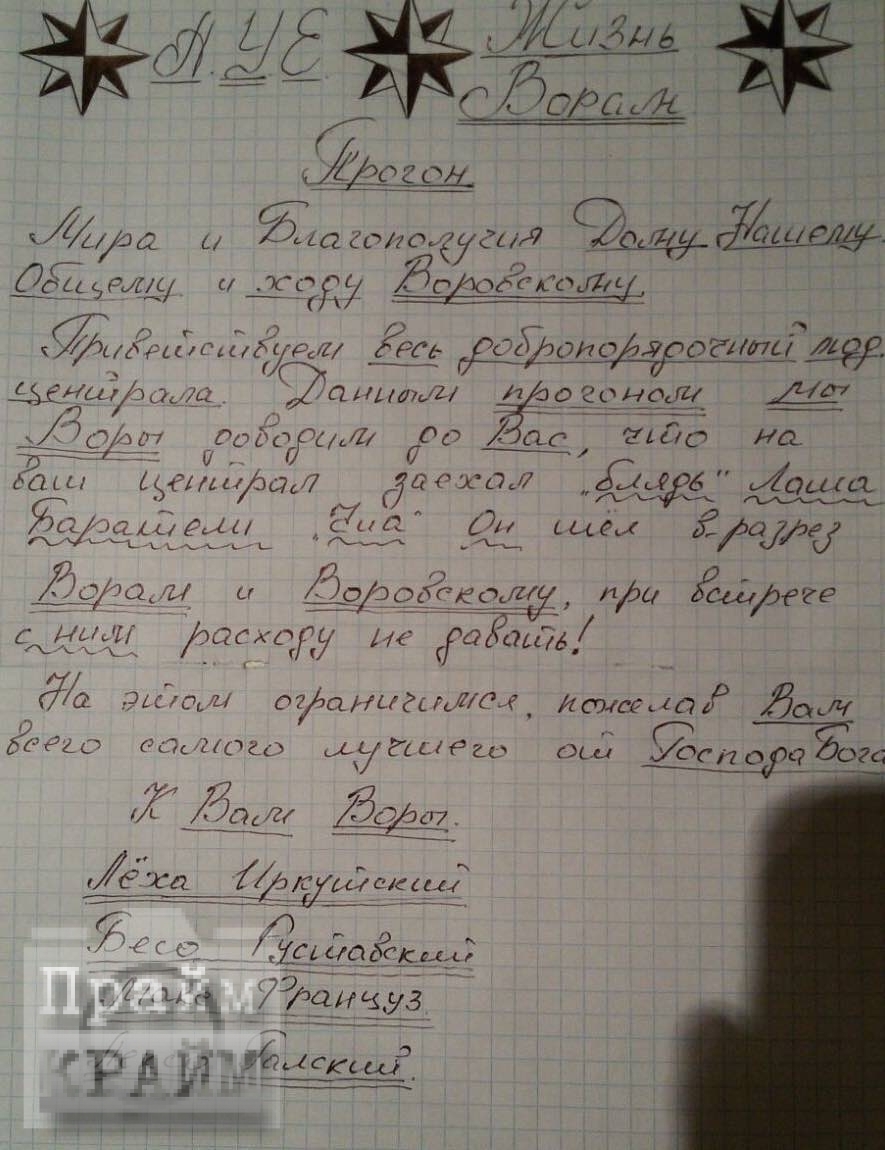 А.У.Е. Жизнь
Ворам
Прогон.
Мира и Благополучия Дому Нашему
Общему и ходу Воровскому.
Приветствуем весь добропорядочный люд
централа. Данным прогоном мы
Воры доводим до Вас, что на
ваш централ заехал "блядь" Лаша
Баратели "Чиа" Он шёл в-разрез
Ворам и Воровскому, при встрече
с ним расходу не давать!
На этом ограничимся, пожелав Вам
всего самого лучшего от Господа Бога
К Вам Воры.
Лёха Иркутский
Бесо Руставский
Макс Француз.
Прайм
КРАЙМ